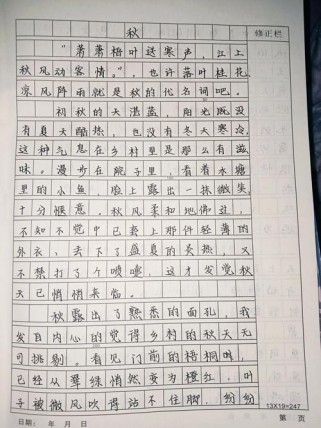 秋
修正栏
“萧萧梧叶送寒声，江上
秋风动客情。”，也许落叶桂花，
凉风阵雨就是秋的代名词吧。
初秋的天湛蓝，阳光既没
有夏天酷热，也没有冬天寒冷，
这种气息在乡村里是那么有滋
味。漫步在院子里，看着水塘
里的小鱼，脸上露出一抹微笑，
十分惬意。秋风柔和地佛过，
不知不觉中已套上那件轻薄的
外衣，去下了盛夏的炎热，又
不禁打了个喷嚏，这才发觉秋
天已悄悄来临。
秋露出了熟悉的面孔，我
发自内心的觉得乡村的秋天无
可挑剔。看见门前的梧桐树，
已经从翠绿悄然变为橙红，叶
子被微风吹得站不住脚，纷纷
13X19=247
日期： 年 月 日 第 页